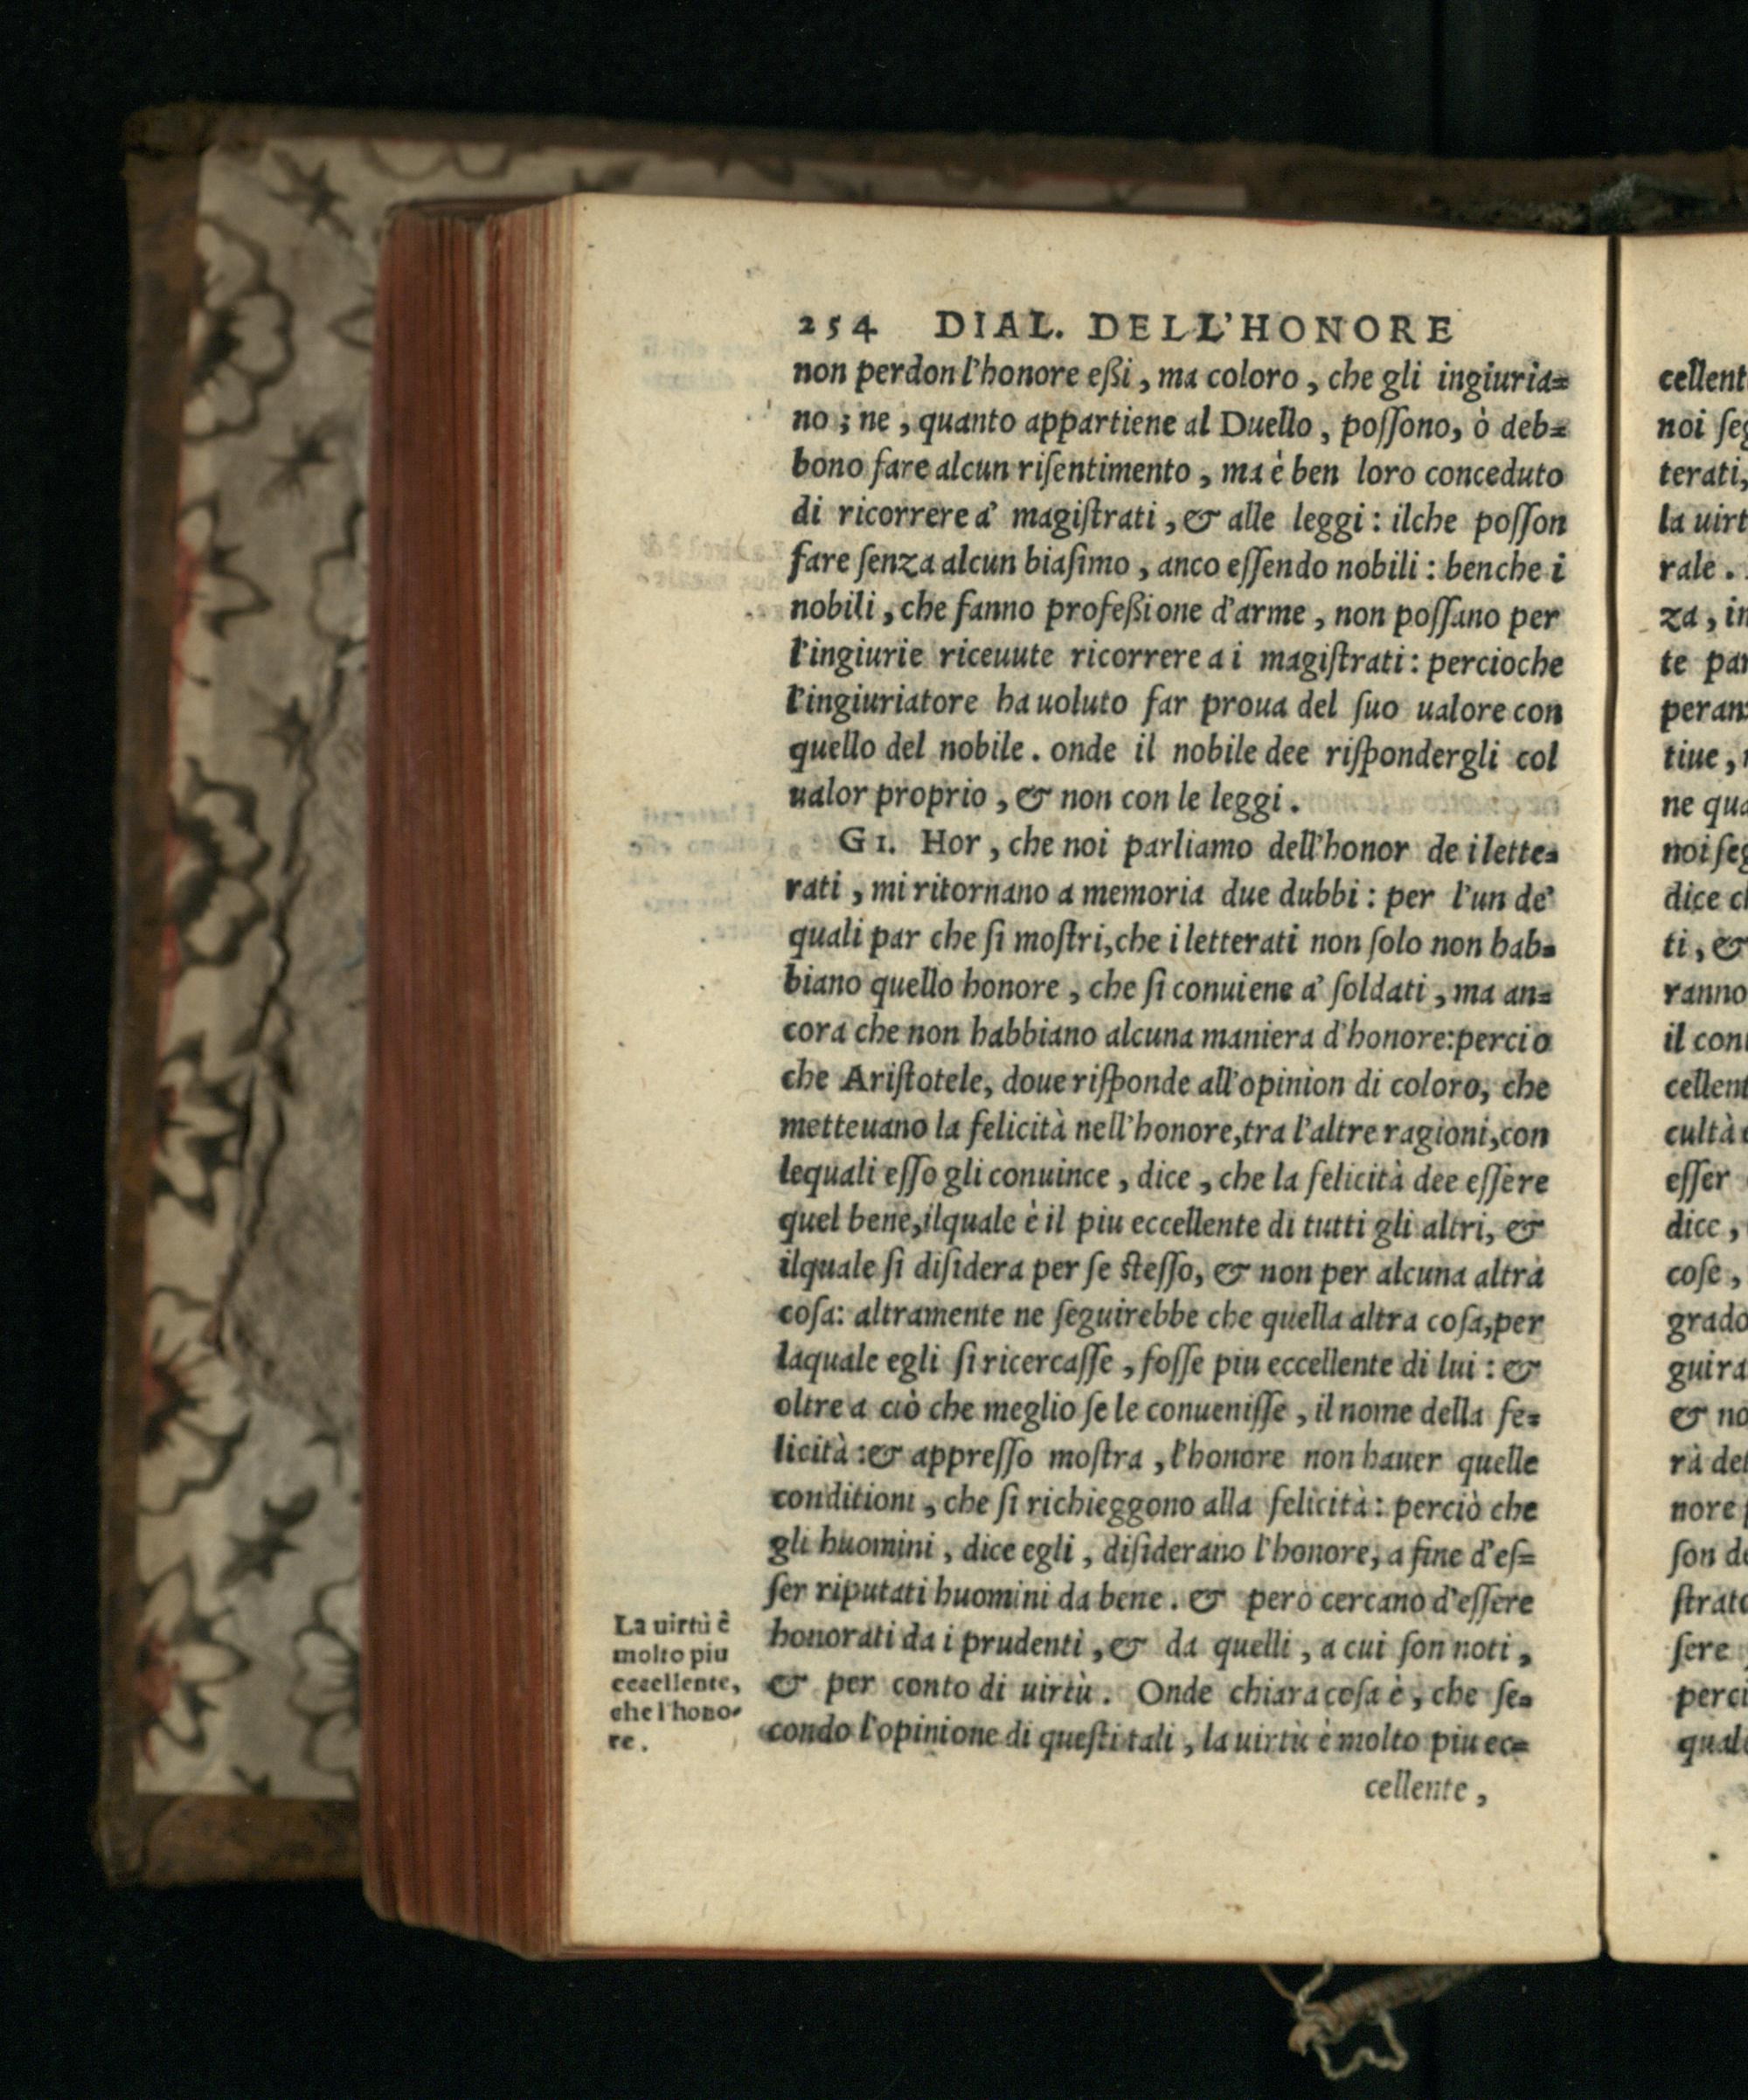 254 DIAL. DELL'HONORE
non perdon l'honore eßi, ma coloro, che gli ingiuria=
no; ne, quanto appartiene al Duello, poſſono, ò deb=
bono fare alcun riſentimento, ma è ben loro conceduto
di ricorrere a' magiſtrati, & alle leggi: ilche poſſon
fare ſenza alcun biaſimo, anco eſſendo nobili: benche i
nobili, che fanno profeßione d'arme, non poſſano per
l'ingiurie riceuute ricorrere a i magiſtrati: percioche
l'ingiuriatore ha uoluto far proua del ſuo ualore con
quello del nobile. onde il nobile dee riſpondergli col
ualor proprio, & non con le leggi.
GI. Hor, che noi parliamo dell'honor de i lette=
rati, mi ritornano a memoria due dubbi: per l'un de'
quali par che ſi moſtri, che i letterati non ſolo non hab=
biano quello honore, che ſi conuiene a' ſoldati, ma an=
cora che non habbiano alcuna maniera d'honore: percio
che Ariſtotele, doue riſponde all'opinion di coloro, che
metteuano la felicità nell'honore, tra l'altre ragioni, con
lequali eſſo gli conuince, dice, che la felicità dee eſſere
quel bene, ilquale è il piu eccellente di tutti gli altri, &
ilquale ſi diſidera per ſe ſteſſo, & non per alcuna altra
coſa: altramente ne ſeguirebbe che quella altra coſa, per
laquale egli ſi ricercaſſe, foſſe piu eccellente di lui: &
oltre a ciò che meglio ſe le conueniſſe, il nome della fe=
licità: & appreſſo moſtra, l'honore non hauer quelle
conditioni, che ſi richieggono alla felicità: perciò che
gli huomini, dice egli, diſiderano l'honore, a fine d'eſ=
ſer riputati huomini da bene. & però cercano d'eſſere
honorati da i prudenti, & da quelli, a cui ſon noti,
& per conto di uirtù. Onde chiara coſa è, che ſe=
condo l'opinione di queſti tali, la uirtù è molto piu ec=
cellente,
La uirtù è
molto piu
eccellente,
che l'hono-
re.
cellent
noi ſeg
terati,
la uirt
rale.
za, in
te par
peran
tiue,
ne qua
noi ſeg
dice ch
ti, &
ranno
il con
cellent
cultà
eſſer
dice,
coſe,
grado
guira
& no
rà del
nore
ſon de
ſtrato
ſere
perci
quali